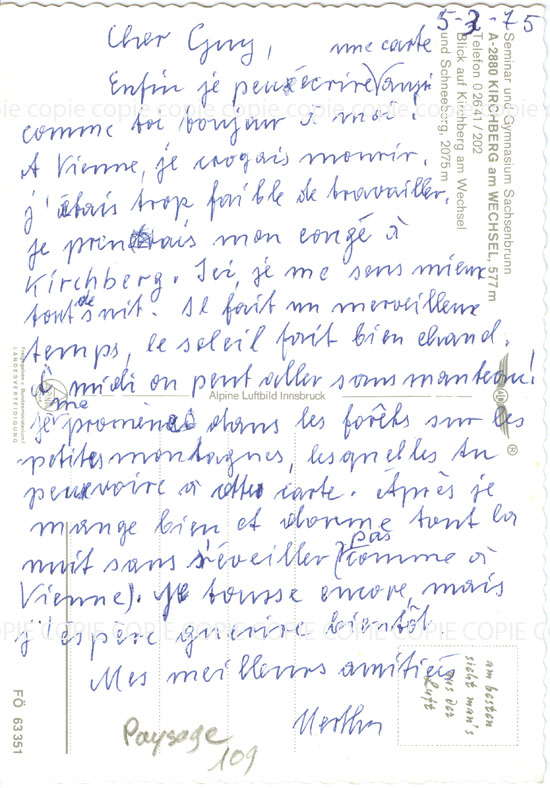 5-3-75
Cher Guy,
une carte
Enfin je peux écrire aussi
comme toi bonjour à moi.
A Vienne, je croyais mourir,
j'étais trop faible de travailler.
Je prenais mon congé à
Kirchberg. Ici, je me sens mieux
tout de suit. Il fait un merveilleux
temps, le soleil fait bien chaud.
À midi on peut aller sans manteau!
je me promène dans les forêts sur les
petites montagnes, lesquelles tu
peux voire à cette carte. Après je
mange bien et dorme tout la
nuit sans s'éveiller (pas comme à
Vienne). Je tousse encore, mais
j'espère guerire bientôt.
Mes meilleurs amitiés
Hertha
Paysage
109
Seminar und Gymnasium Sachsenbrunn
A-2880 KIRCHBERG am WECHSEL, 577 m
Telefon 0 26 41 / 202
Blick auf Kirchberg am Wechsel
und Schneeberg, 2075 m
Alpine Luftbild Innsbruck
Freigegeben v. Bundesministerium f.
LANDESVERTEIDIGUNG
®
FÖ 63 351
am besten
sieht man's
aus der
Luft
COPIE COPIE COPIE COPIE COPIE COPIE COPIE